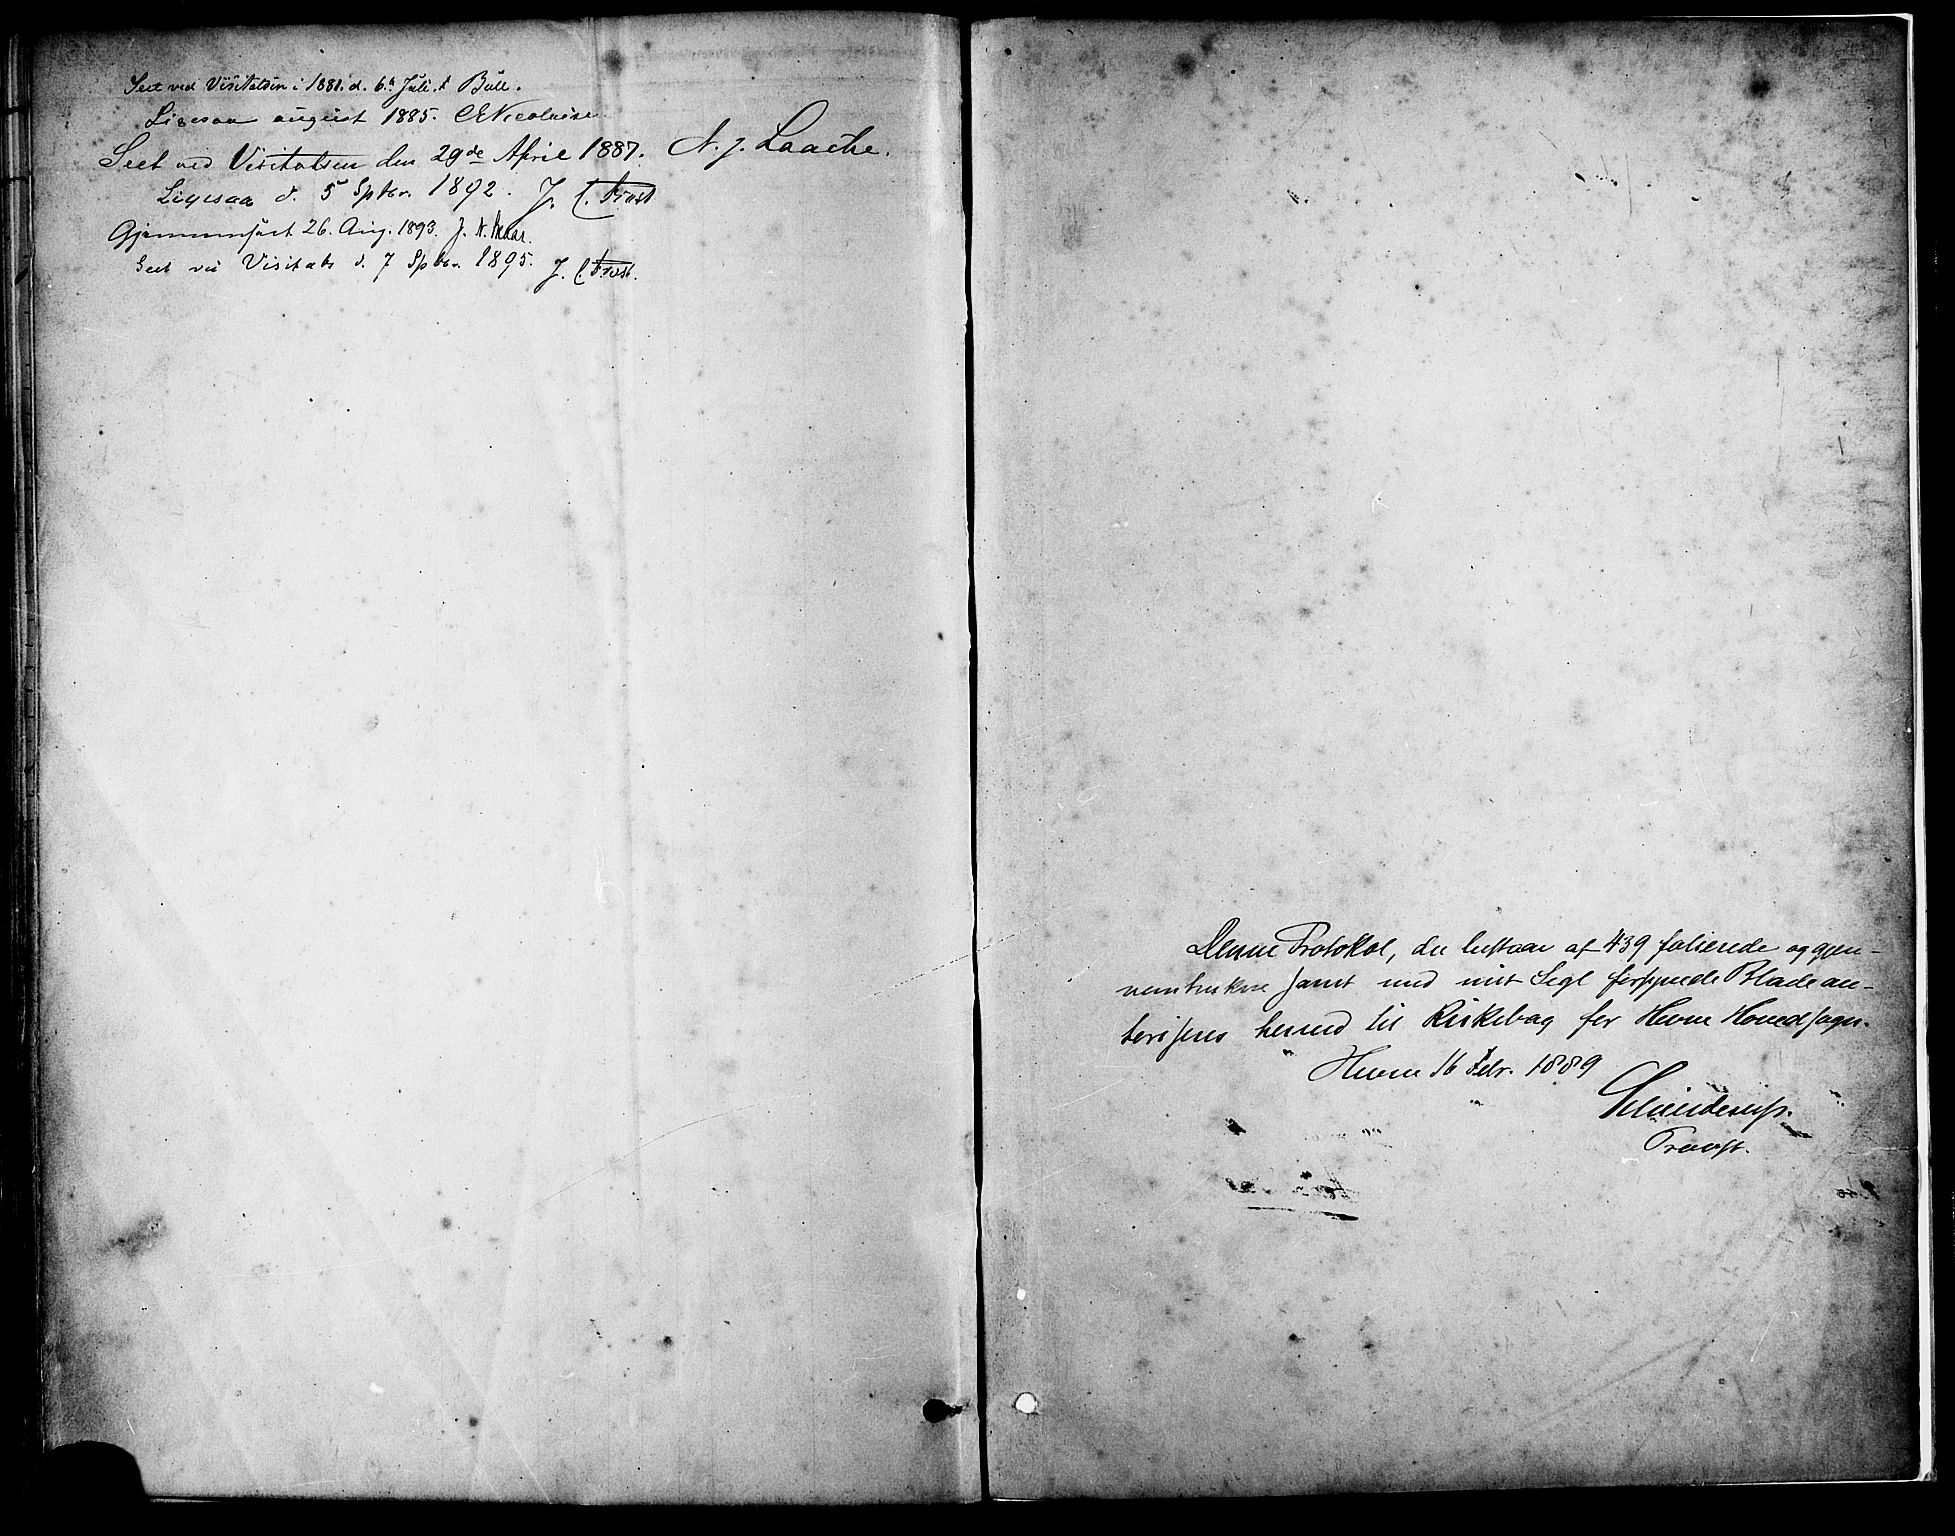 Seet ved Visitatsen i 1881. d. 6te Juli. Bull.
Ligesaa august 1885. CENicolaisen
Seet ved Visitatsen den 29de April 1887. N. J. Laache.
Ligesaa d. 5 Sptbr. 1892. J. C. Frost
Gjennemseet 26. Aug. 1893. J. N.
Seet ved Visitats d. 7 Sptbr. 1895. J. C. Frost.
Denne Protokol, der bestaar af 439 folierede og gjen-
nemtrukne samt med mit Segl forsynede Blade au-
toriseres herved til Kirkebog for Hevne Hovedsogn.
Hevne 16 Febr. 1889
Provst.